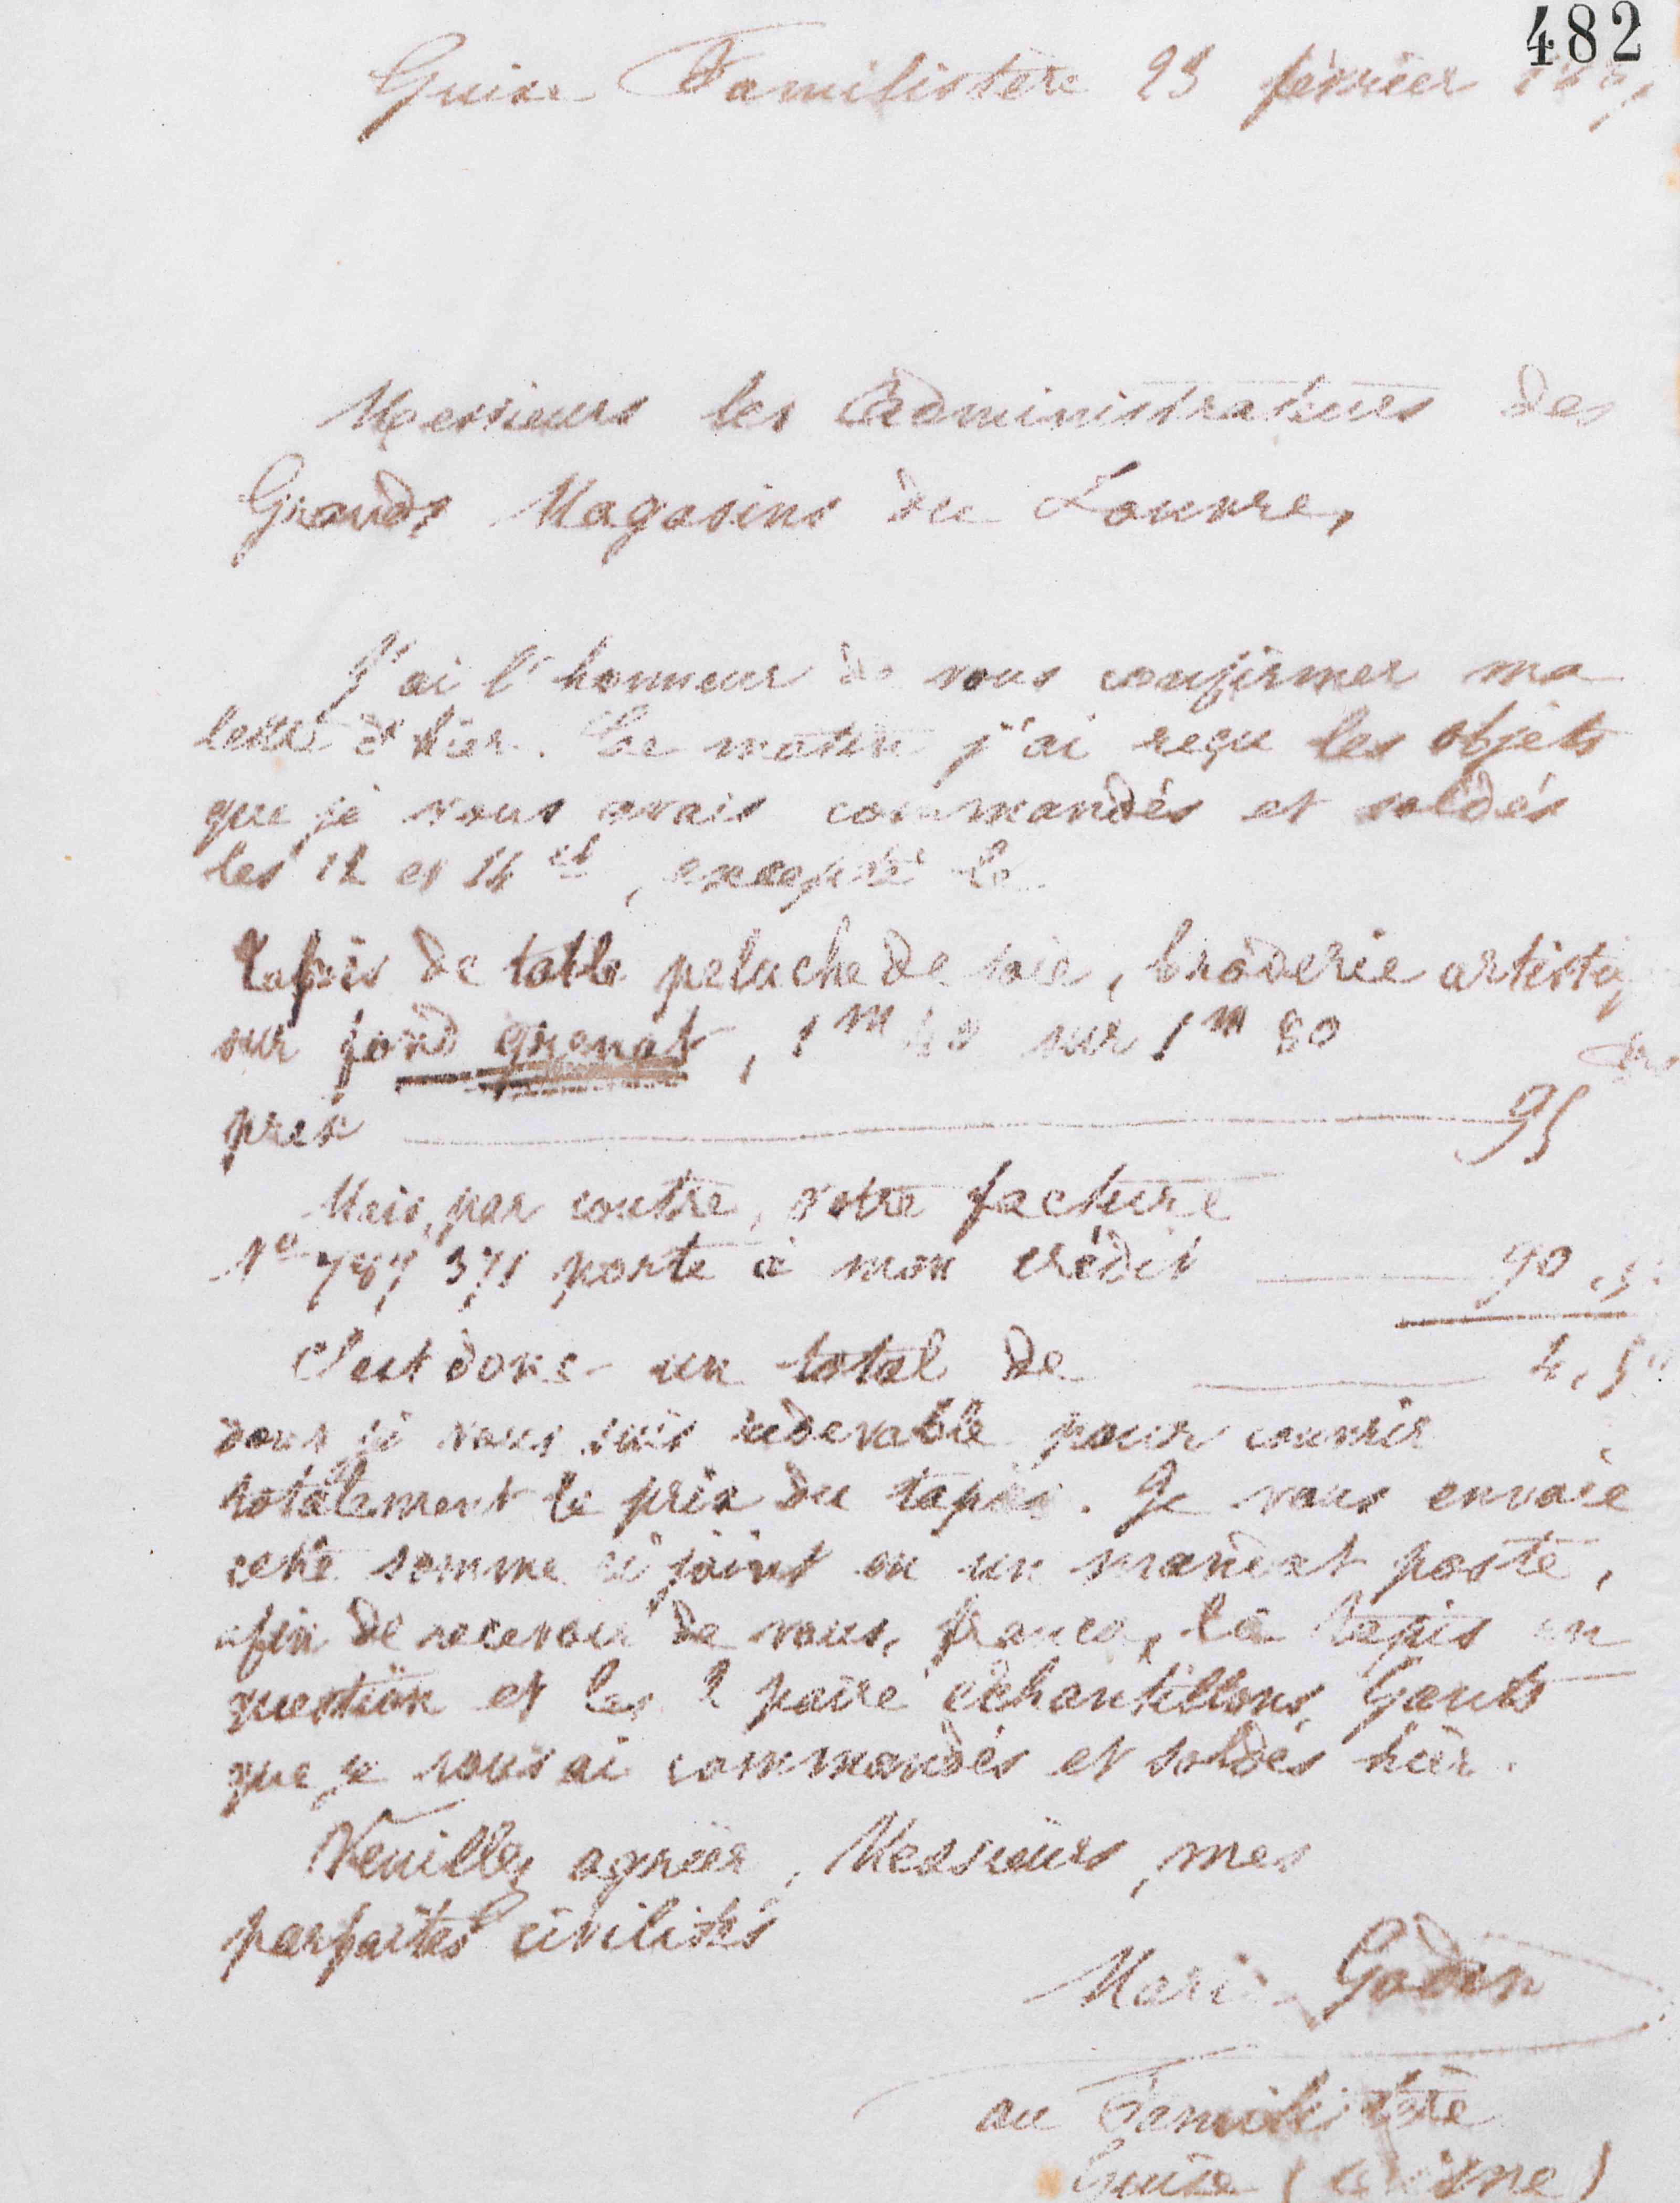 482
Guise Familistère 25 février
Messieurs les Administrateurs des
Grands Magasins du Louvre,
J'ai l'honneur de vous confirmer ma
lettre d'hier. Ce matin j'ai reçu les objets
que je vous avais commandés et soldés
les 12 et 14 ct, excepté le
Tapis de table peluche de soie, broderie artistiq
sur fond grenat, 1m 40 sur 1m 80
prix 95
Mais, par contre, votre facture
No 787 371 porte à mon crédit 90
C'est donc un total de 4,5
dont je vous suis redevable pour couvrir
totalement le prix du tapis. Je vous envoie
cette somme ci joint en un mandat poste,
afin de recevoir de vous, franco, le tapis en
question et les 2 paire échantillons Gants
que je vous ai commandés et soldés hier.
Veuillez agréer, Messieurs, mes
parfaites civilités
Marie Godin
au Familistère
Guise (Aisne)